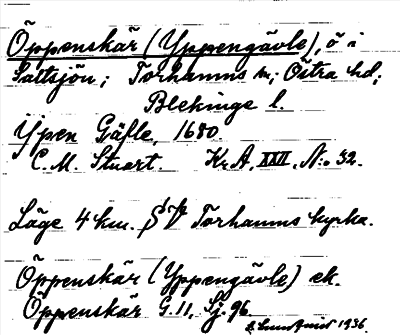 Öppenskär (Yppengävle), ö i
Saltsjön; Torhamns sn; Östra hd;
Blekinge l.
Ypen Gäfle, 1680
C. M. Stuart. Kr. A. XXII. No 32.
Läge 4 km. SV Torhamns kyrka.
Öppenskär (Yppengävle) ek.
Öppenskär G. 11, Sj. 96.
1936.